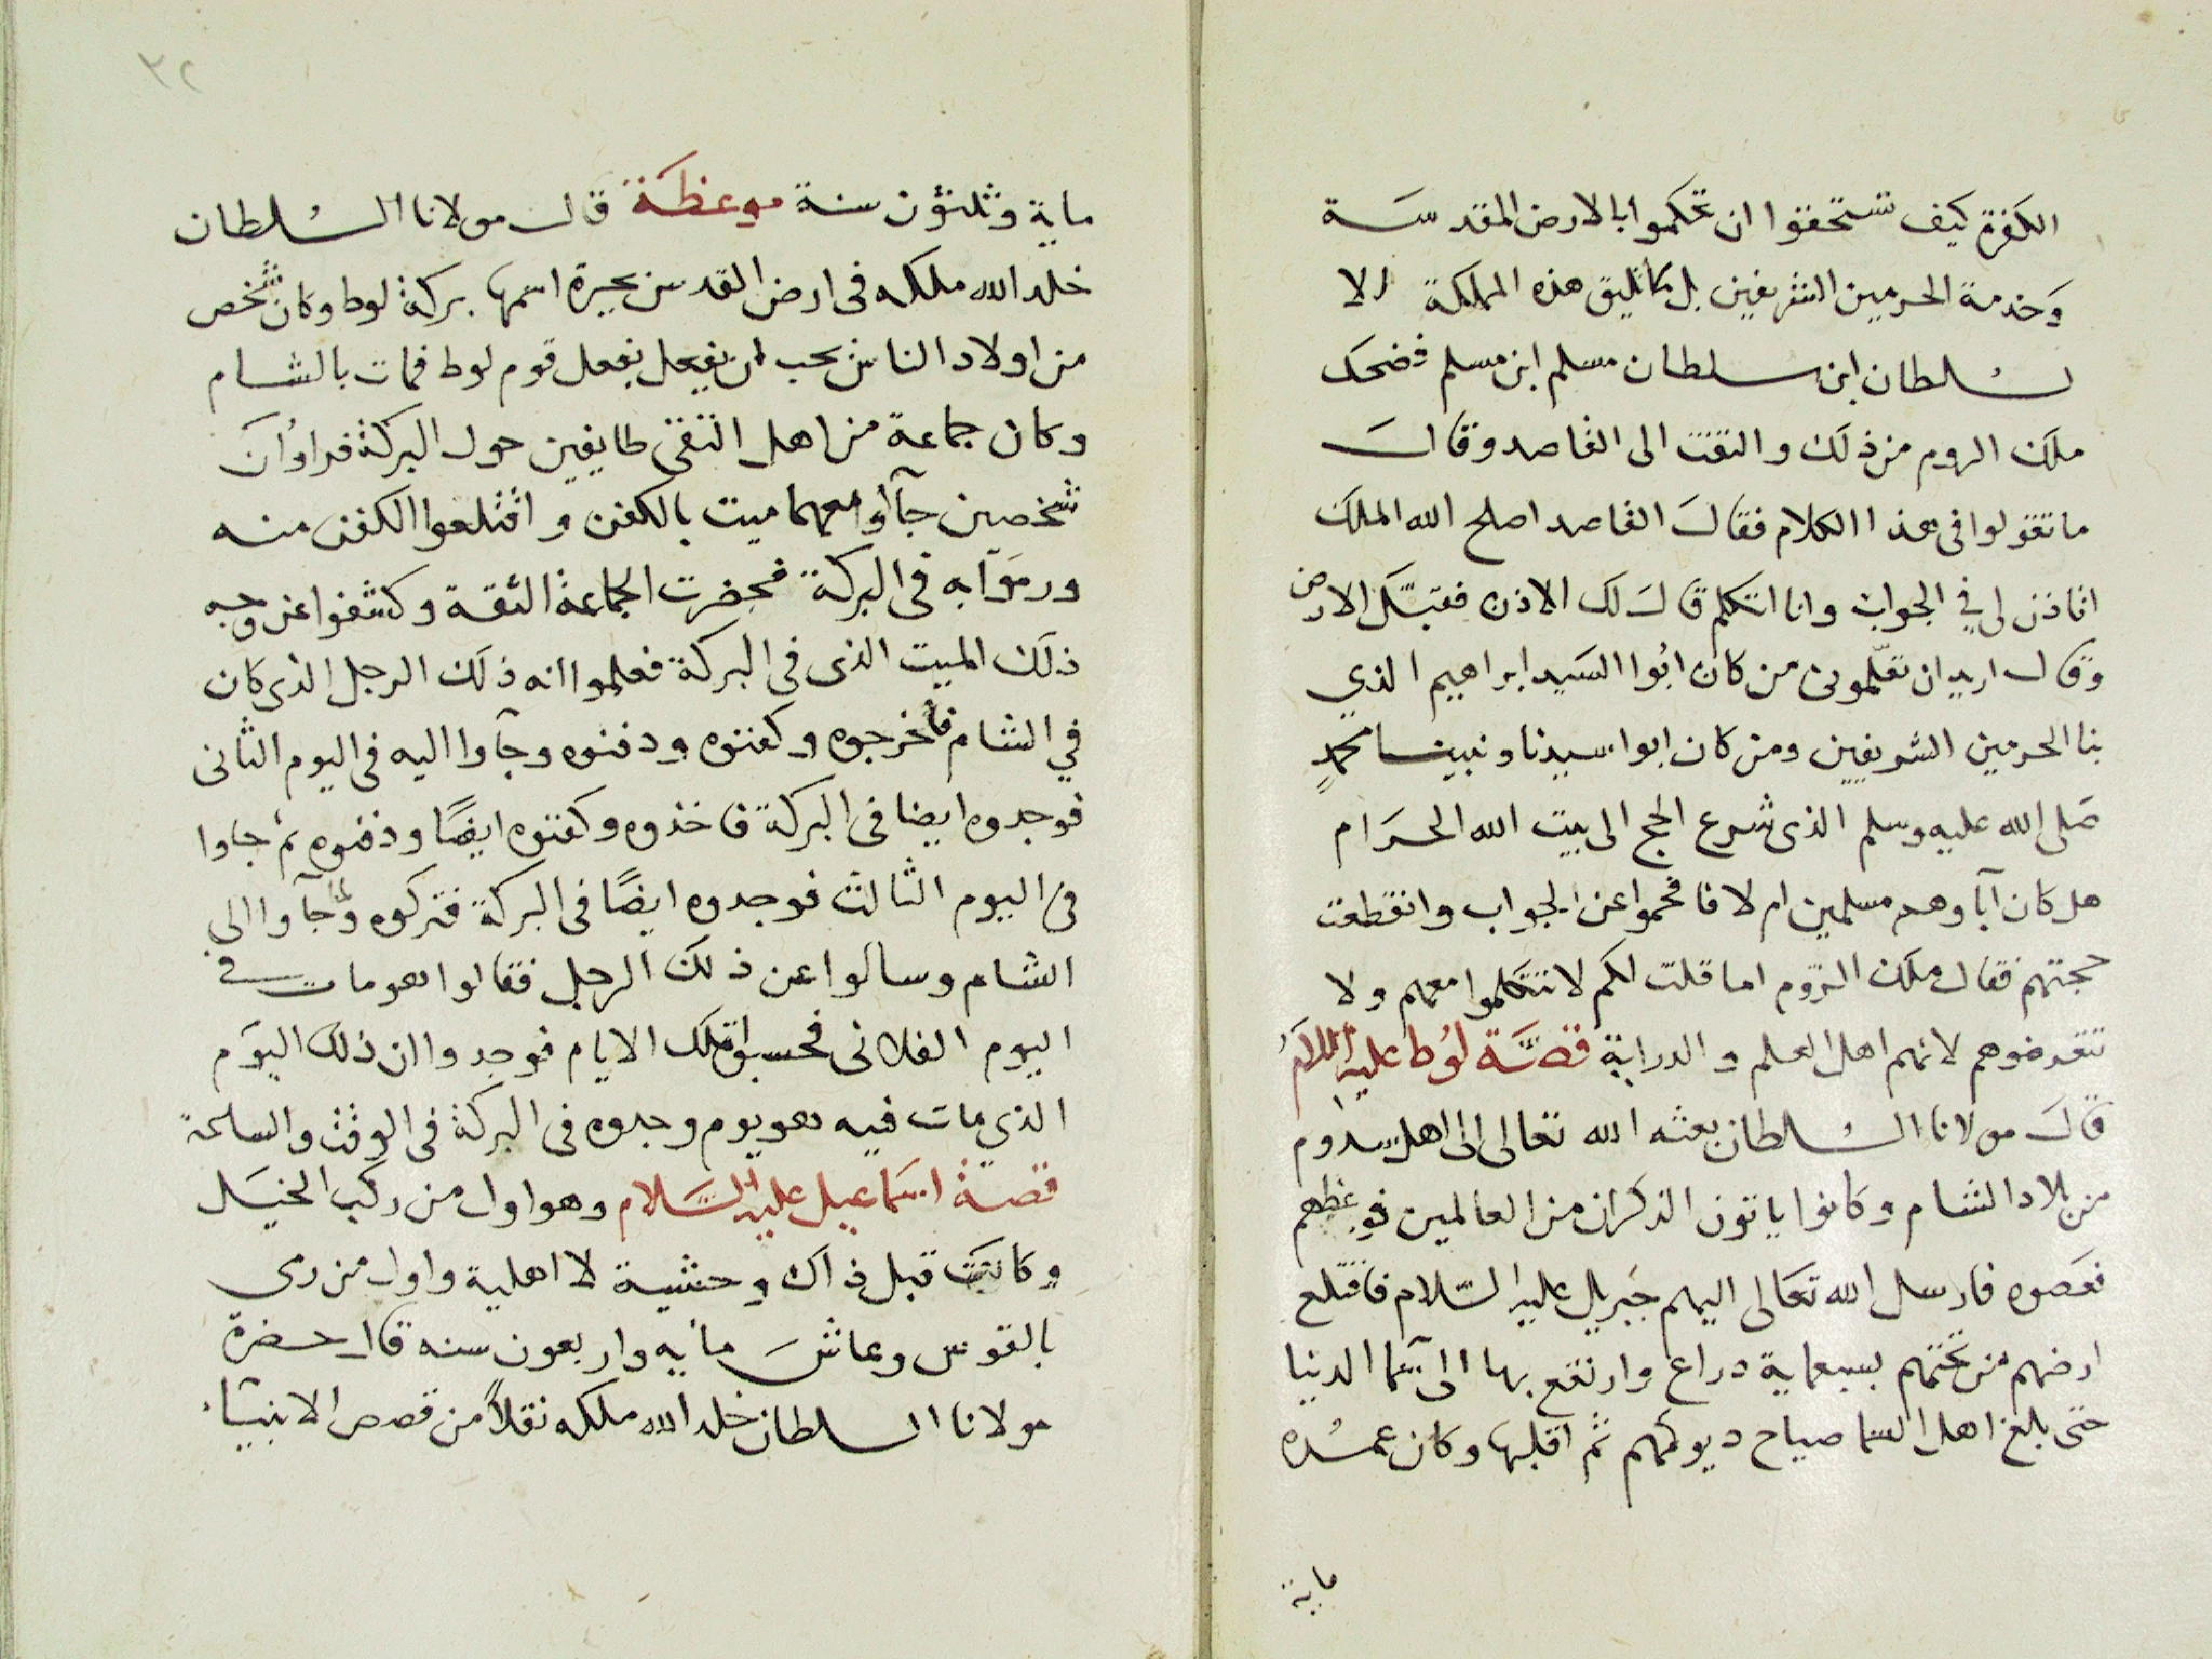 الكفرة كيف تستحقوا ان تحكموا بالارض المقدسة
وخدمة الحرمين الشريفين بل ما تليق هذه المملكة الا
لسلطان ابن سلطان مسلم ابن مسلم فضحك
ملك الروم من ذلك والتفت الى القاصد وقال
ما تقولوا في هذا الكلام فقال القاصد اصلح الله الملك
اتاذن لي في الجواب وانا اتكلم قال لك الاذن فقبّل الارض
وقال اريد ان تعلّموني من كان ابوا السيد ابراهيم الذي
بنا الحرمين الشريفين ومن كان ابوا سيدنا ونبينا محمدٍ
صلى الله عليه وسلم الذى شرع الحج الى بيت الله الحرام
هل كان آباوهم مسلمين ام لا فافحموا عن الجواب وانقطعت
حجتهم فقال ملك الروم اما قلت لكم لا تتكلموا معهم ولا
تتعرضوهم لانهم اهل العلم والدراية قصّة لوط عليه السلام
قال مولانا السلطان بعثه الله تعالى الى اهل سدوم
من بلاد الشام وكانوا ياتون الذكران من العالمين فوعظهم
فعصوه فارسل الله تعالى اليهم جبريل عليه السلام فاقتلع
ارضهم من تحتهم بسبعماية دراع وارتفع بها الى سما الدنيا
حتى بلغ اهل السما صياح ديوكهم ثم اقلبها وكان عمره
ماية
٣٢
ماية وثلثون سنة موعظة قال مولانا السلطان
خلد الله ملكه فى ارض القدس بحيرة اسمها بركة لوط وكان شخص
من اولاد الناس يحب ان يفعل بفعل قوم لوط فمات بالشام
وكان جماعة من اهل التقى طايفين حول البركة فراوا ان
شخصين جآوا معهما ميت بالكفن واقتلعوا الكفن منه
ورموا به فى البركة فحضرت الجماعة الثقة وكشفوا عن وجه
ذلك الميت الذى فى البركة فعلموا انه ذلك الرجل الذى كان
في الشام فأخرجوه وكفنوه ودفنوه وجآوا اليه فى اليوم الثانى
فوجدوه ايضا فى البركة فاخذوه وكفنوه ايضًا ودفنوه ثم جاوا
فى اليوم الثالث فوجدوه ايضًا فى البركة فتركوه وجآوا الى
الشام وسالوا عن ذلك الرجل فقالوا هو مات فى
اليوم الفلانى فحسبوا تلك الايام فوجدوا ان ذلك اليوم
الذي مات فيه هو يوم وجدوه فى البركة فى الوقت والساعة
قصة اسماعيل عليه السلام وهو اول من ركب الخيل
وكانت قبل ذاك وحشية لا اهلية واول من رمى
بالقوس وعاش مايه واربعون سنه قال حضرة
مولانا السلطان خلد الله ملكه نقلاً من قصص الانبيآء